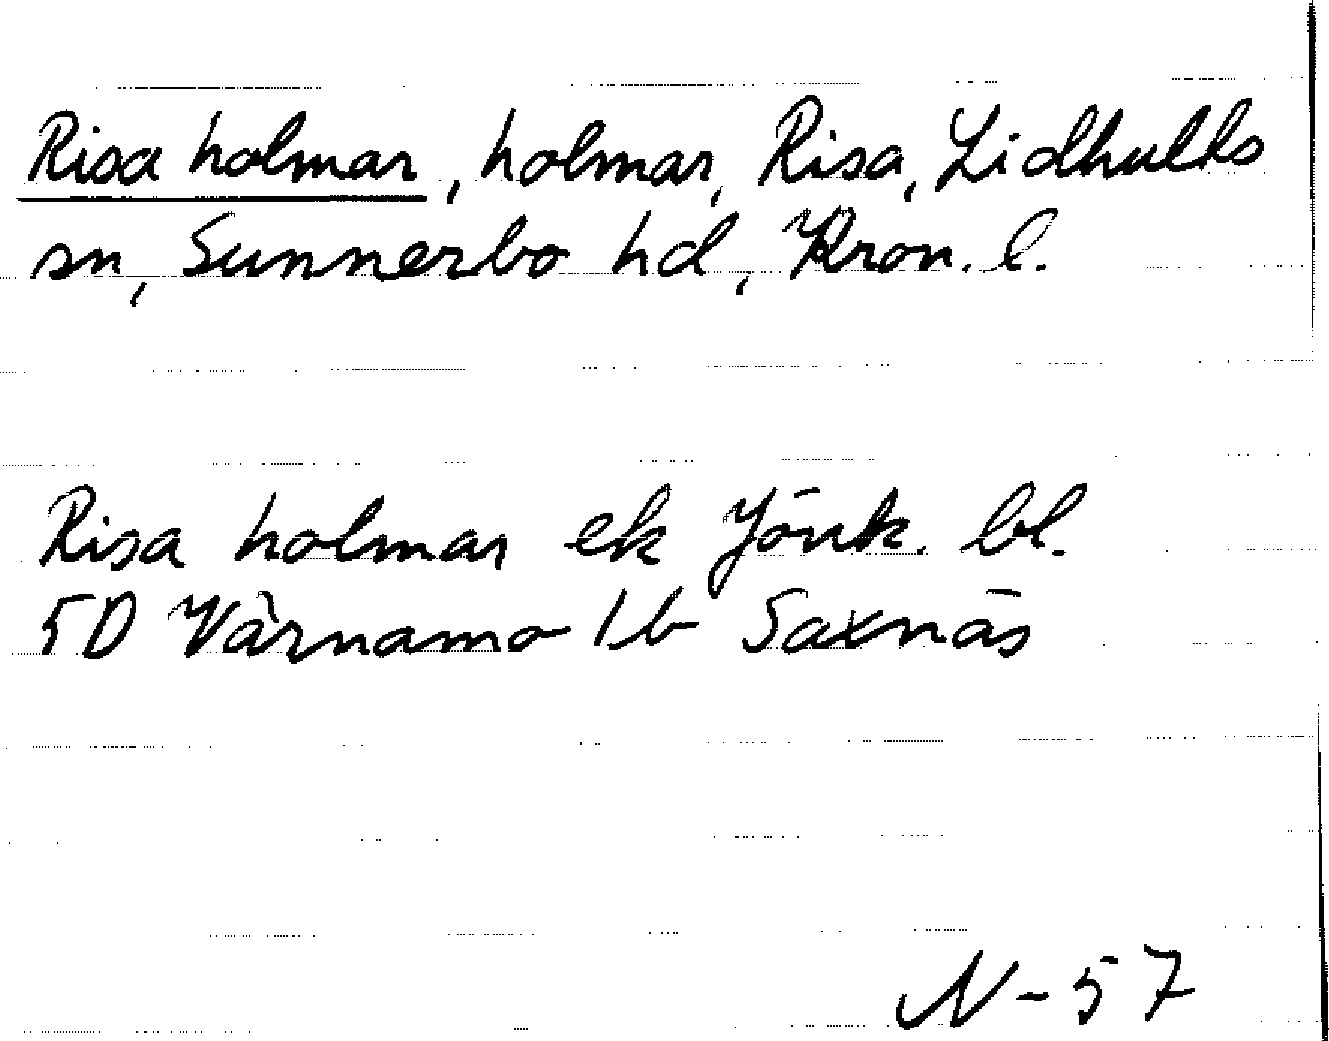 Risa holmar, holmar, Risa, Lidhults
sn, Sunnerbo hd, Kron. l.
Risa holmar ek Jönk. bl.
5D Värnamo 1b Saxnäs
N-57